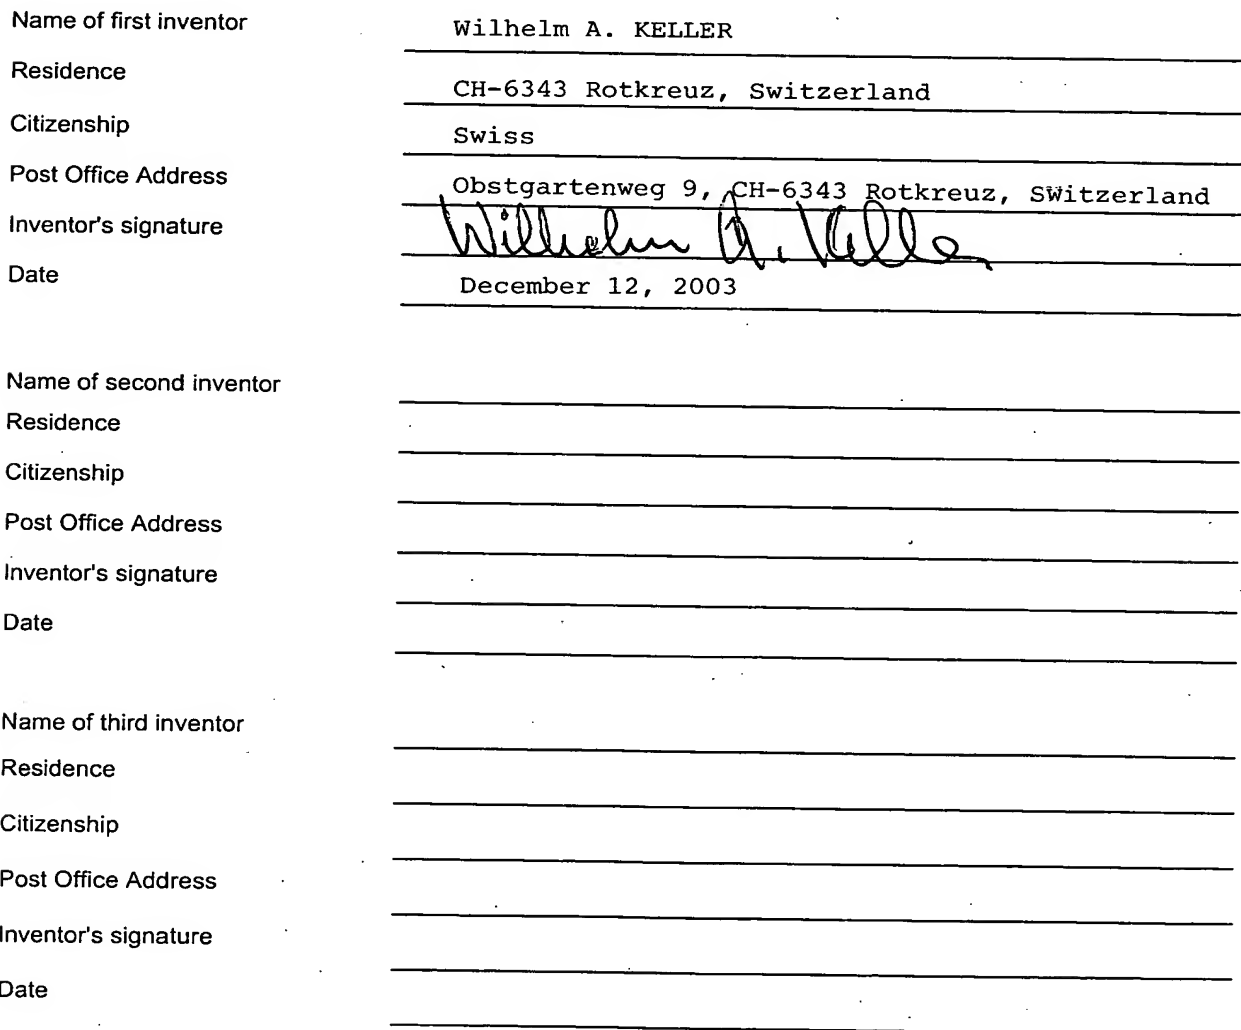 Name of first inventor Wilhelm A. KELLER
Residence CH-6343 Rotkreuz, Switzerland
Citizenship Swiss
Post Office Address Obstgartenweg 9, CH-6343 Rotkreuz, Switzerland
Inventor's signature Wilhelm A. Keller
Date December 12, 2003
Name of second inventor
Residence
Citizenship
Post Office Address
Inventor's signature
Date
Name of third inventor
Residence
Citizenship
Post Office Address
Inventor's signature
Date